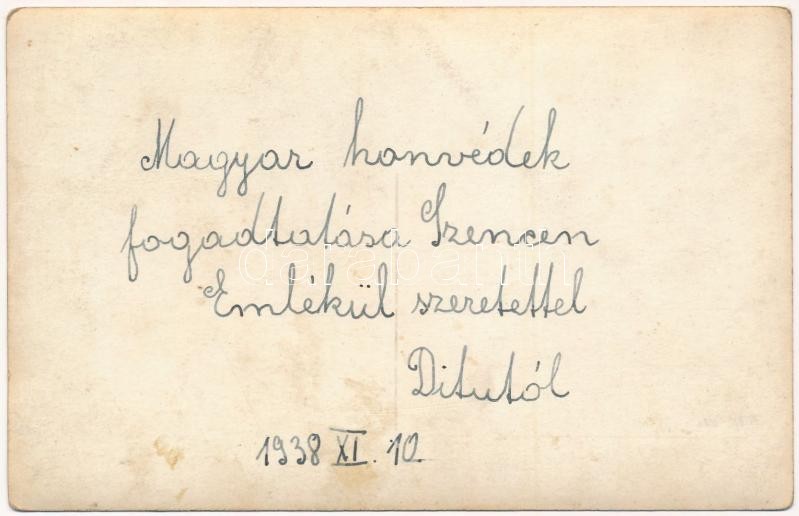 Magyar honvédek
fogadtatása Szencen
Emlékül szeretettel
Ditutól
1938 XI. 10